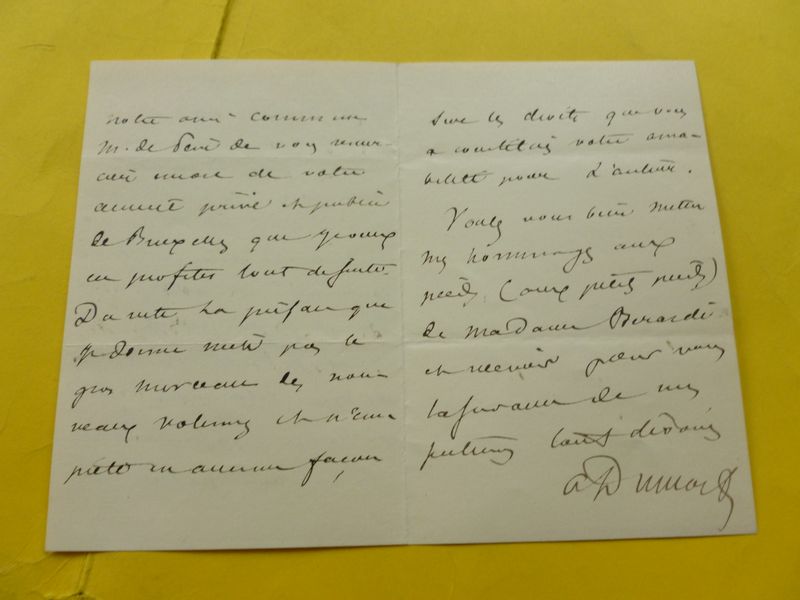 notre ami commun
M. de Péne de vous remer-
cier encore de votre
accueil privé et public
de Bruxelles que je veux
en profiter tout de suite.
Du reste la préface que
je donne n'est pas le
gros morceau des nou-
veaux volumes et n'em-
piète en aucune façon
sur les droits que vous
a constitués votre ama-
bilité pour l'auteur.
Voulez vous bien mettre
mes hommages aux
pieds (aux petits pieds)
de Madame Berardi
et recevoir pour vous
l'assurance de mes
sentiments tout dévoués
A Dumas f